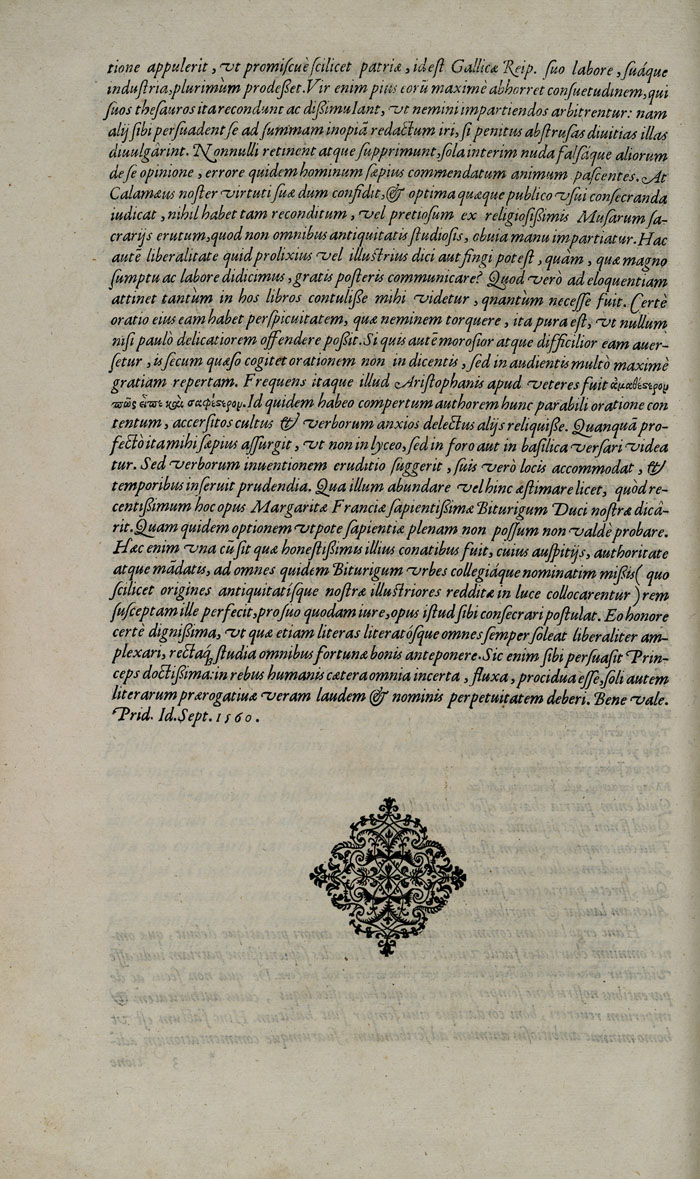 tione appulerit, vt promiscuè scilicet patriæ, id est Gallicæ Reip. suo labore, suáque
industria, plurimùm prodeßet. Vir enim pius eorũ maximè abhorret consuetudinem, qui
suos thesauros ita recondunt ac dißimulant, vt nemini impartiendos arbitrentur: nam
alij sibi persuadent se ad summam inopiã redactum iri, si penitus abstrusas diuitias illas
diuulgârint. Nonnulli retinent atque supprimunt, sola interim nuda falsáque aliorum
de se opinione, errore quidem hominum sæpius commendatum animum pascentes. At
Calamæus noster virtuti suæ dum confidit, & optima quæque publico vsui consecranda
iudicat, nihil habet tam reconditum, vel pretiosum ex religiosißimis Musarum sa-
crarijs erutum, quod non omnibus antiquitatis studiosis, obuia manu impartiatur. Hac
autẽ liberalitate quid prolixius vel illustrius dici aut fingi potest, quàm, quæ magno
sumptu ac labore didicimus, gratis posteris communicare? Quod verò ad eloquentiam
attinet tantum in hos libros contulisse mihi videtur, qnantum necesse fuit. Certè
oratio eius eam habet perspicuitatem, quæ neminem torquere, ita pura est, vt nullum
nisi paulò delicatiorem offendere poßit. Si quis autẽ morosior atque difficilior eam auer-
setur, is secum quæso cogitet orationem non in dicentis, sed in audientis multò maximè
gratiam repertam. Frequens itaque illud Aristophanis apud veteres fuit ἀμαθέστερον
πῶς εἰπὲ καὶ σαφέστερον. Id quidem habeo compertum authorem hunc parabili oratione con
tentum, accersitos cultus & verborum anxios delectus alijs reliquiße. Quanquã pro-
fectò ita mihi sæpius assurgit, vt non in lyceo, sed in foro aut in basilica versari videa
tur. Sed verborum inuentionem eruditio suggerit, suis verò locis accommodat, &
temporibus inseruit prudendia. Qua illum abundare vel hinc æstimare licet, quòd re-
centißimum hoc opus Margaritæ Franciæ sapientißimæ Biturigum Duci nostræ dicâ-
rit. Quam quidem optionem vtpote sapientiæ plenam non possum non valdè probare.
Hæc enim vna cũ sit quæ honestißimis illius conatibus fuit, cuius auspitijs, authoritate
atque mãdatis, ad omnes quidem Biturigum vrbes collegiáque nominatim mißis (quo
scilicet origines antiquitatísque nostræ illustriores redditæ in luce collocarentur) rem
susceptam ille perfecit, pro suo quodam iure, opus istud sibi consecrari postulat. Eo honore
certè dignißima, vt quæ etiam literas literatósque omnes semper soleat liberaliter am-
plexari, rectaq́, studia omnibus fortunæ bonis anteponere. Sic enim sibi persuasit Prin-
ceps doctißima: in rebus humanis cætera omnia incerta, fluxa, procidua esse, soli autem
literarum prærogatiuæ veram laudem & nominis perpetuitatem deberi. Bene vale.
Prid. Id. Sept. 1560.